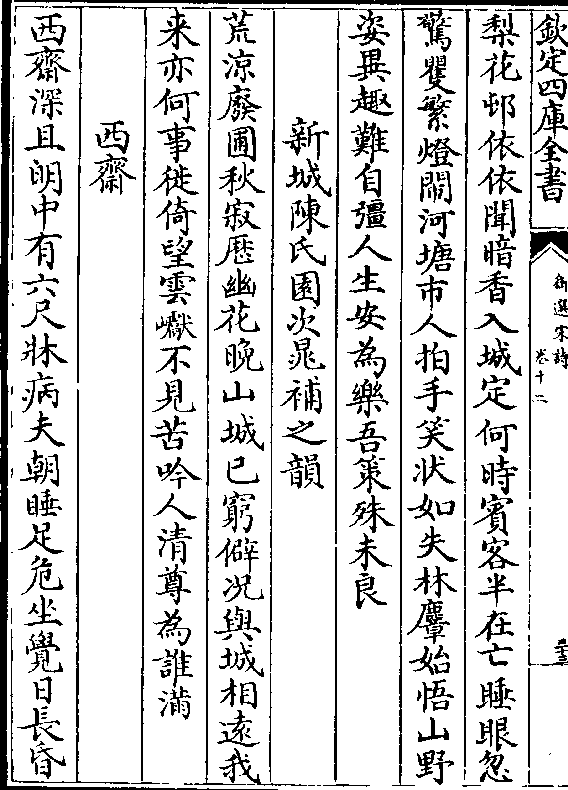 欽定四庫全書
御選宋詩
卷十二
三十三
梨花邨依依聞暗香入城定何時賓客半在亡睡眼忽
驚矍繁燈閙河塘市人拍手笑狀如失林麞始悟山野
姿異趣難自彊人生安為樂吾策殊未良
新城陳氏園次晁補之韻
荒涼廢圃秋寂歴幽花晚山城已窮僻况與城相遠我
来亦何事徙倚望雲巘不見苦吟人清尊為誰滿
西齋
西齋深且明中有六尺牀病夫朝睡足危坐覺日長昏